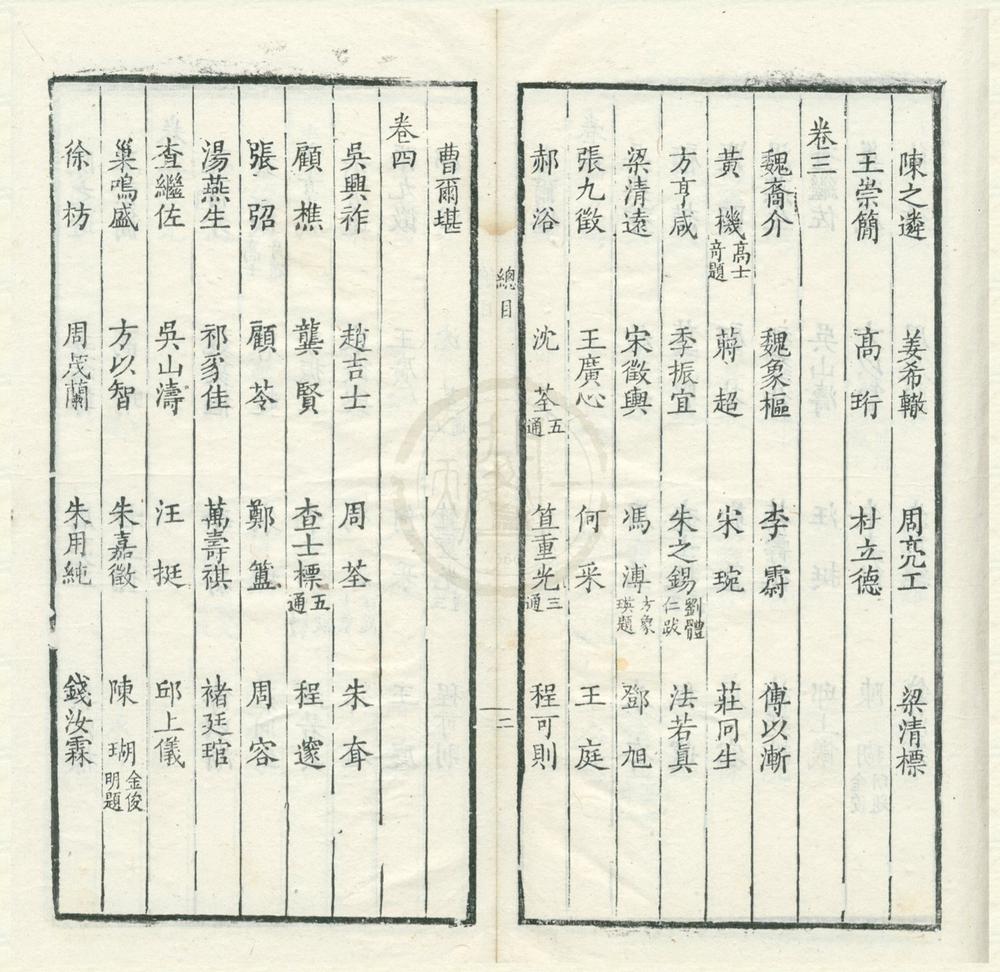 陳之遴 姜希轍 周亮工 梁清標
王崇簡 高珩 杜立德
卷三
魏裔介 魏象樞 李霨 傅以漸
黃機高士奇題 蔣超 宋琬 莊冋生
方亨咸 季振宜 朱之錫劉體仁跋 法若眞
梁清遠 宋徵輿 馮溥方象瑛題 鄧旭
張九徵 王廣心 何采 王庭
郝浴 沈荃五通 笪重光三通 程可則
總目
二
曹爾堪
卷四
吳興祚 趙吉士 周荃 朱耷
顧樵 龔賢 查士標五通 程邃
張弨 顧苓 鄭簠 周容
湯燕生 祁豸佳 萬壽祺 褚廷琯
查繼佐 吳山濤 汪挺 邱上儀
巢鳴盛 方以智 朱嘉徵 陳瑚金俊明題
徐枋 周茂蘭 朱用純 錢汝霖